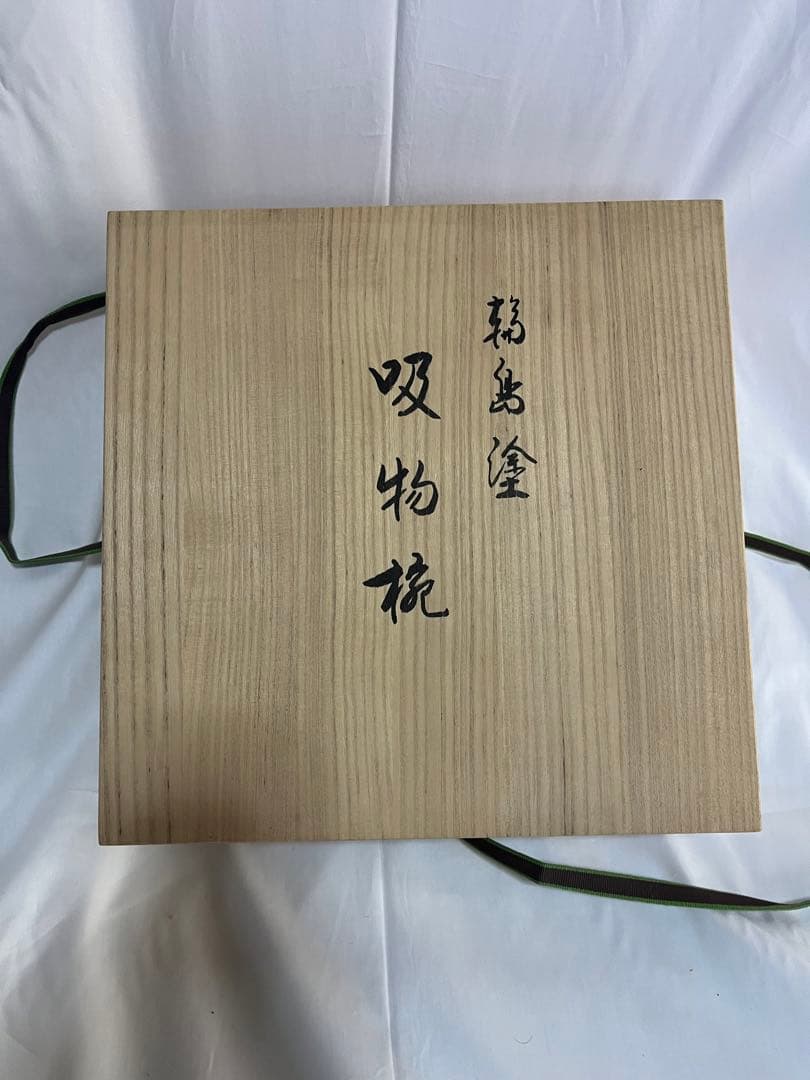 輪島塗
吸物椀